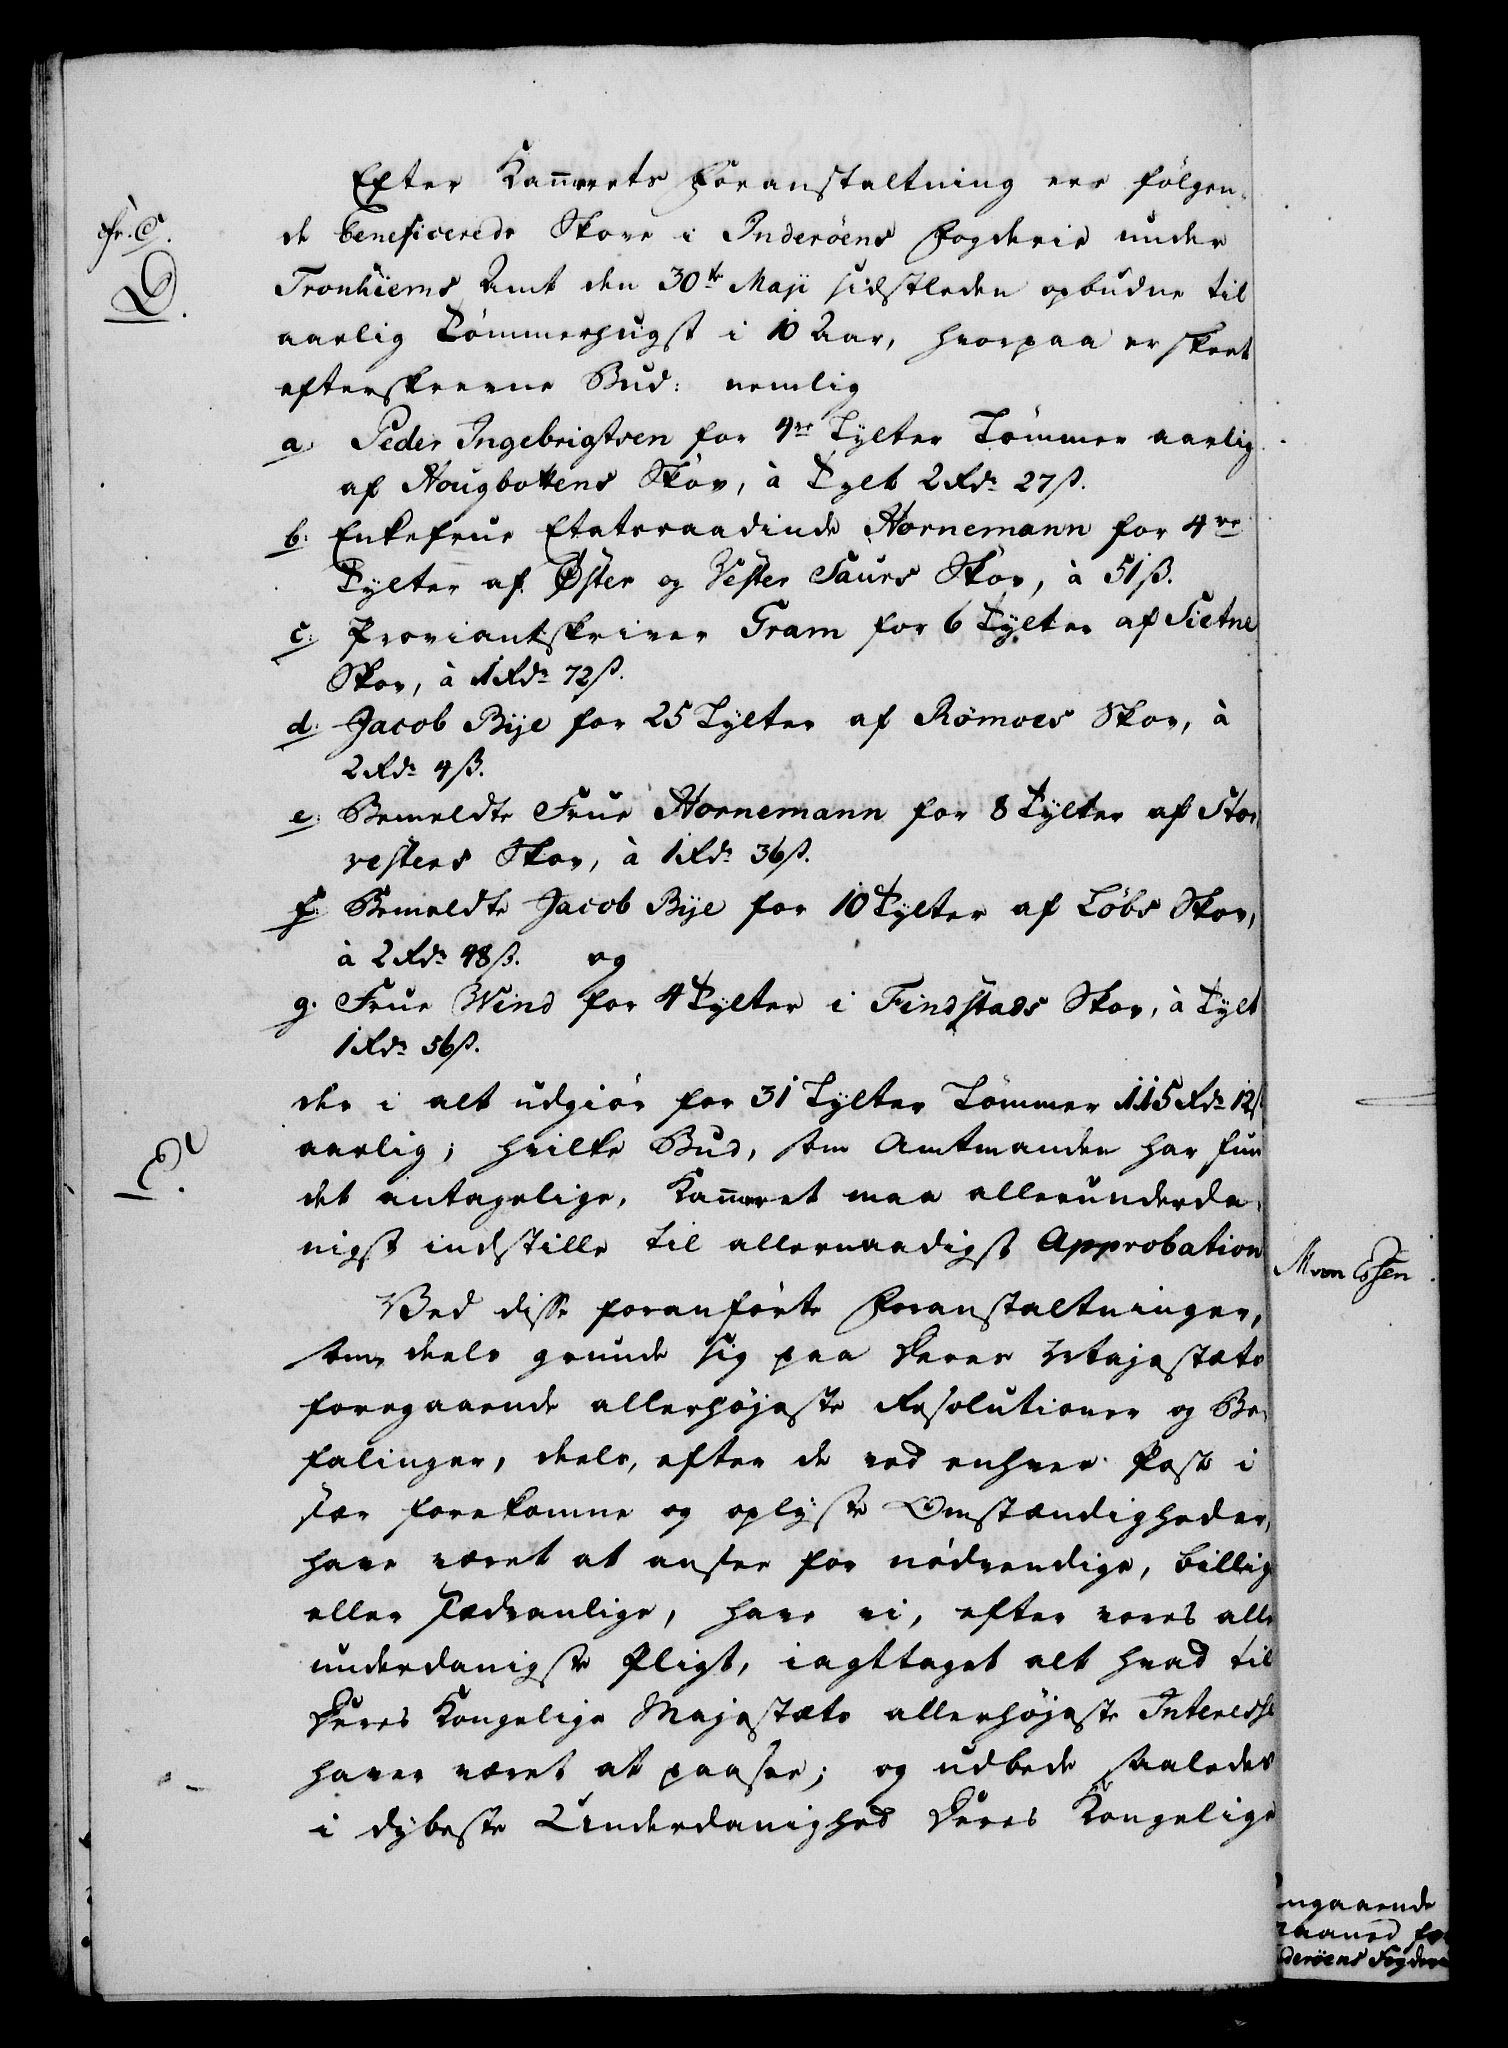 Efter Kammerets Foranstaltning ere fölgen-
de beneficerede Skove i Inderöens Fogderie under
Tronhiems Amt den 30te Maji sidstleden opbudne til
aarlig Tömmerhugst i 10 Aar, hvorpaa er skeet
efterskrevne Bud: nemlig
a. Peder Ingebrigtsen for 4re Tylter Tömmer aarlig
af Hougbottens Skov, à Tylt 2 Rdr 27 ß.
b. Enkefrue Etatsraadinde Hornemann for 4re
Tylter af Öster og Vester Saurs Skov, à 51 ß.
c. Proviantskriver Gram for 6 Tylter af Sietne
Skov, à 1 Rdr 72 ß.
d. Jacob Bye for 25 Tylter af Römoes Skov, à
2 Rdr 4 ß.
e. Bemeldte Frue Hornemann for 8 Tylter af Stor-
vesters Skov, à 1 Rdr 36 ß.
f. Bemeldte Jacob Bye for 10 Tylter af Löbs Skov,
à 2 Rdr 48 ß. og
g. Frue Wind for 4 Tylter i Findstads Skov, à Tylt
1 Rdr 56 ß.
der i alt udgiör for 31 Tylter Tömmer 115 Rdr 12 ß
aarlig; hvilke Bud, som Amtmanden har fun
det antagelige, Kammeret maa allerunderda-
nigst indstille til allernaadigst Approbation
Ved disse foranförte Foranstaltninger,
som deels grunde sig paa Deres Majestæts
foregaaende allerhöjeste Resolutioner og Be-
falinger, deels, efter de ved enhver Post i
sær forekomne og oplyste Omstændigheder,
have været at ansee for nödvendige, billige
eller sædvanlige, have vi, efter vores aller
underdanigste Pligt, iagttaget alt hvad til
Deres Kongelige Majestæts allerhöjeste Interesse
haver været at paasee; og udbede saaledes
i dybeste Underdanighed Deres Kongelige
fr. C.
D.
E.
M von Essen
ngaaende
Maaned for
deröens Fogderie